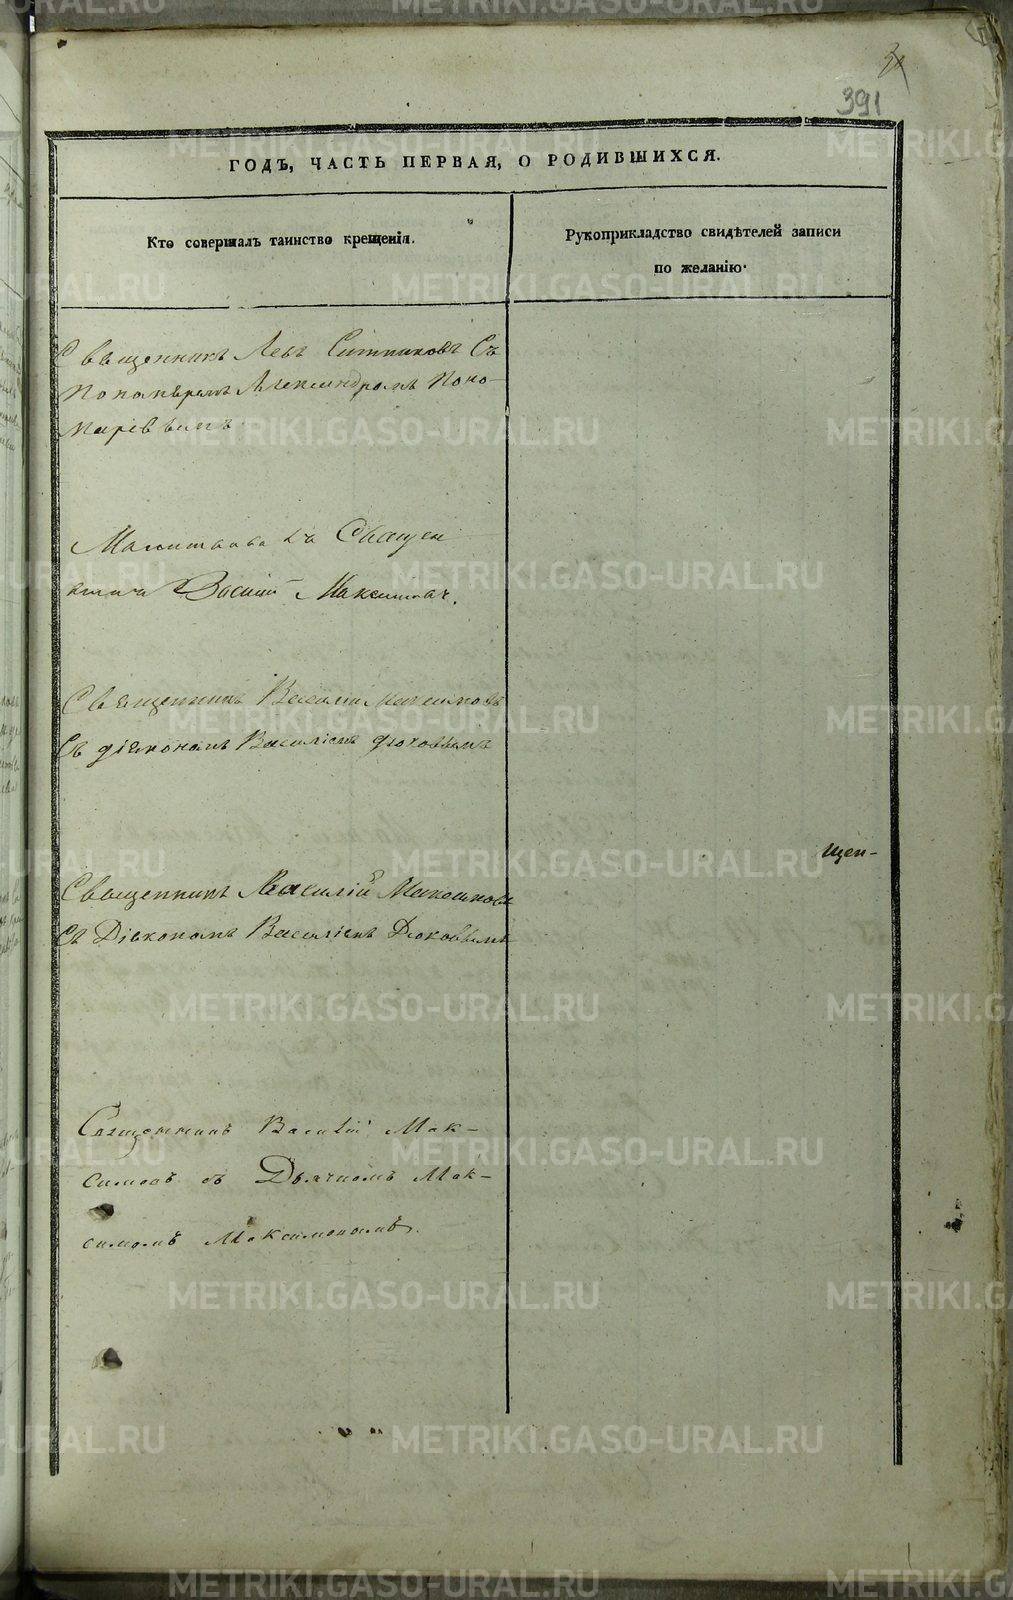 391
ГОДЪ, ЧАСТЬ ПЕРВАЯ, О РОДИВШИХСЯ.
Кто совершалъ таинство крещенія.
Рукоприкладство свидѣтелей записи
по желанію.
Священникъ Левъ Ситниковъ Съ
Пономаремъ Александромъ Поно-
маревымъ
Священ
Василий Максимов.
Священникъ Василий
Съ діякономъ Василіемъ Дюковымъ
щен-
Священникъ Василій
Съ Діякономъ Василіемъ Дюковымъ
Священникъ Василій Мак-
симовъ съ Дьячкомъ Мак-
симомъ Максимовымъ.
METRIKI.GASO-URAL.RU